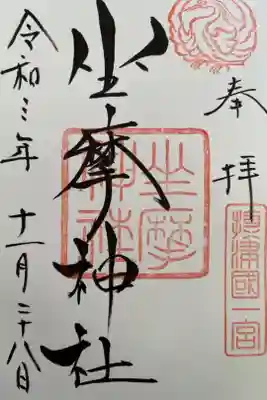 奉拝
摂津國一宮
坐摩神社
坐摩神社
令和三年 十一月二十八日